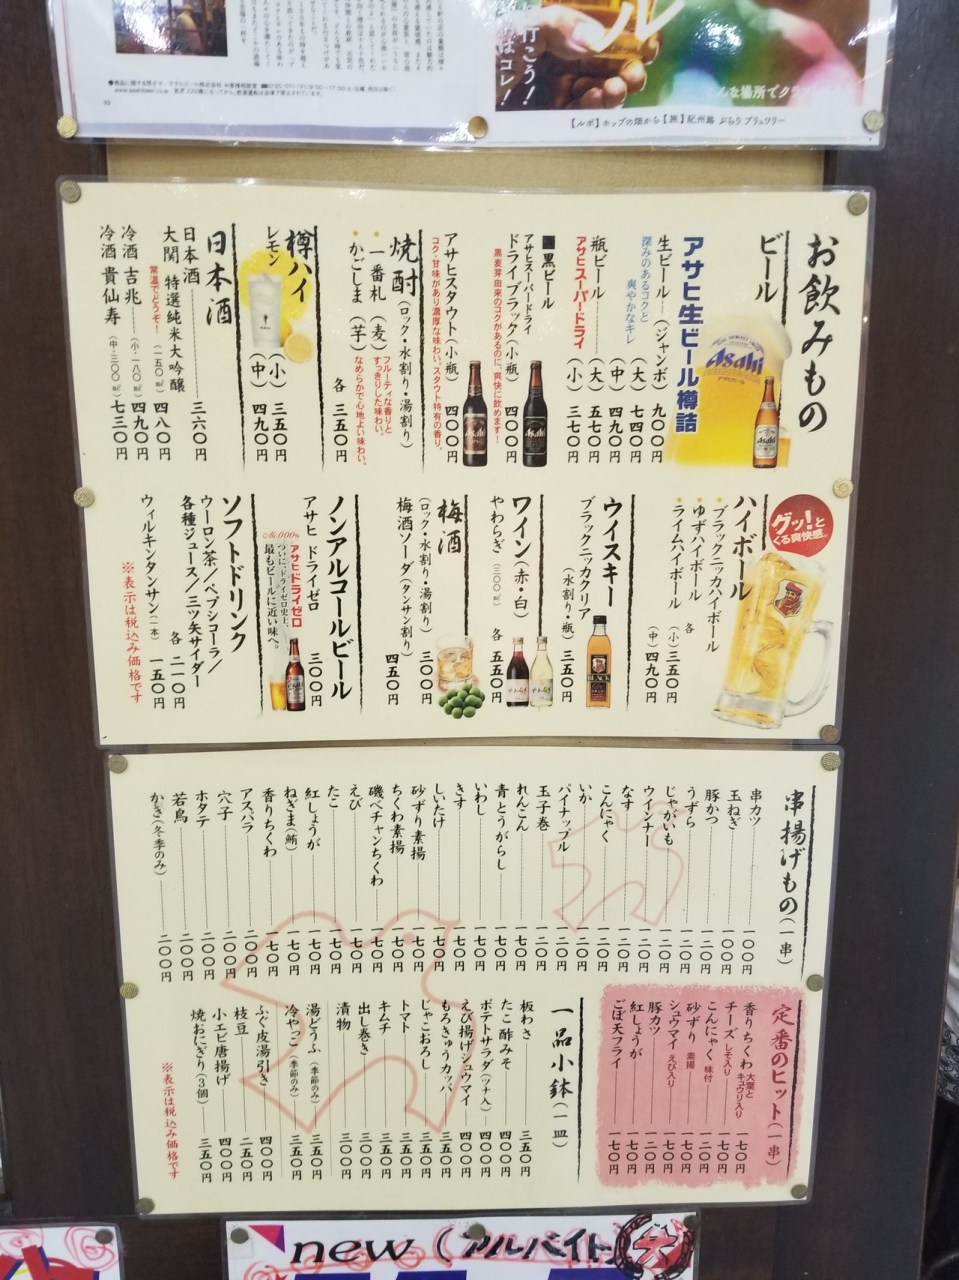 行こう！
はコレ！
んな場所でクラ
【ルポ】ホップの畑から【旅】紀州路 ぶらり ブリュワリー
お飲みもの
ビール
Asahi
アサヒ生ビール樽詰
深みのあるコクと
爽やかなキレ
生ビール (ジャンボ) 九〇〇円
(大) 七四〇円
(中) 四九〇円
(小) 三七〇円
瓶ビール (大) 五七〇円
アサヒスーパードライ (小) 三七〇円
■黒ビール
アサヒスーパードライ
ドライブラック(小瓶) 四〇〇円
黒麦芽由来のコクがあるのに、爽快に飲めます！
アサヒスタウト(小瓶) 四〇〇円
コク・甘味があり濃厚な味わい。スタウト特有の香り。
焼酎(ロック・水割り・湯割り)
一番札(麦)
フルーティな香りと
すっきりした味わい。
かごしま(芋)
なめらかで心地よい味わい。
各 三五〇円
樽ハイ
レモン
(小) 三五〇円
(中) 四九〇円
日本酒
日本酒 三六〇円
大関 特選純米大吟醸 (一五〇㎖) 四八〇円
常温でどうぞ！
冷酒 吉兆 (小・一八〇㎖) 四九〇円
冷酒 貴仙寿 (中・三〇〇㎖) 七三〇円
グッ！と
くる爽快感。
ハイボール
ブラックニッカハイボール
ゆずハイボール
ライムハイボール
各
(小) 三五〇円
(中) 四九〇円
ウイスキー
ブラックニッカクリア
(水割り・瓶) 三五〇円
BLACK
ワイン(赤・白)
やわらぎ (三〇〇㎖) 各 五五〇円
梅酒
(ロック・水割り・湯割り) 三〇〇円
梅酒ソーダ(タンサン割り) 四五〇円
ノンアルコールビール
アサヒ ドライゼロ 三〇〇円
アサヒドライゼロ
ついに、ドライゼロ史上、
最もビールに近い味へ。
Alc.0.00%
ソフトドリンク
ウーロン茶／ペプシコーラ／
各種ジュース／三ツ矢サイダー
各 二一〇円
ウィルキンタンサン(一本) 一五〇円
※表示は税込み価格です
串揚げもの(一串)
串カツ 一〇〇円
玉ねぎ 一〇〇円
豚かつ 一二〇円
うずら 一二〇円
じゃがいも 一二〇円
ウインナー 一二〇円
なす 一二〇円
こんにゃく 一二〇円
いか 一二〇円
パイナップル 一二〇円
玉子巻 一二〇円
れんこん 一七〇円
青とうがらし 一七〇円
いわし 一七〇円
きす 一七〇円
しいたけ 一七〇円
砂ずり素揚 一七〇円
ちくわ素揚 一七〇円
磯ベチャンちくわ 一七〇円
えび 一七〇円
たこ 一七〇円
紅しょうが 一七〇円
ねぎま(鮪) 一七〇円
香りちくわ 一七〇円
アスパラ 二〇〇円
穴子 二〇〇円
ホタテ 二〇〇円
若鳥 二〇〇円
かき(冬季のみ) 二〇〇円
定番のヒット(一串)
香りちくわ 大葉とキュウリ入り 一七〇円
チーズ しそ入り 一七〇円
こんにゃく 味付 一二〇円
砂ずり 素揚 一七〇円
シュウマイ えび入り 一七〇円
豚カツ 一二〇円
紅しょうが 一七〇円
ごぼ天フライ 一七〇円
一品小鉢(一皿)
板わさ 三五〇円
たこ酢みそ 四〇〇円
ポテトサラダ(ツナ入) 四〇〇円
えび揚げシュウマイ 四〇〇円
もろきゅうカッパ 三五〇円
じゃこおろし 三五〇円
トマト 三五〇円
キムチ 三五〇円
出し巻き 三〇〇円
漬物 三〇〇円
湯どうふ (季節のみ) 三五〇円
冷やっこ (季節のみ) 三五〇円
ふぐ皮湯引き 四〇〇円
枝豆 二五〇円
小エビ唐揚げ 四〇〇円
焼おにぎり(3個) 三五〇円
※表示は税込み価格です
new (アルバイト)